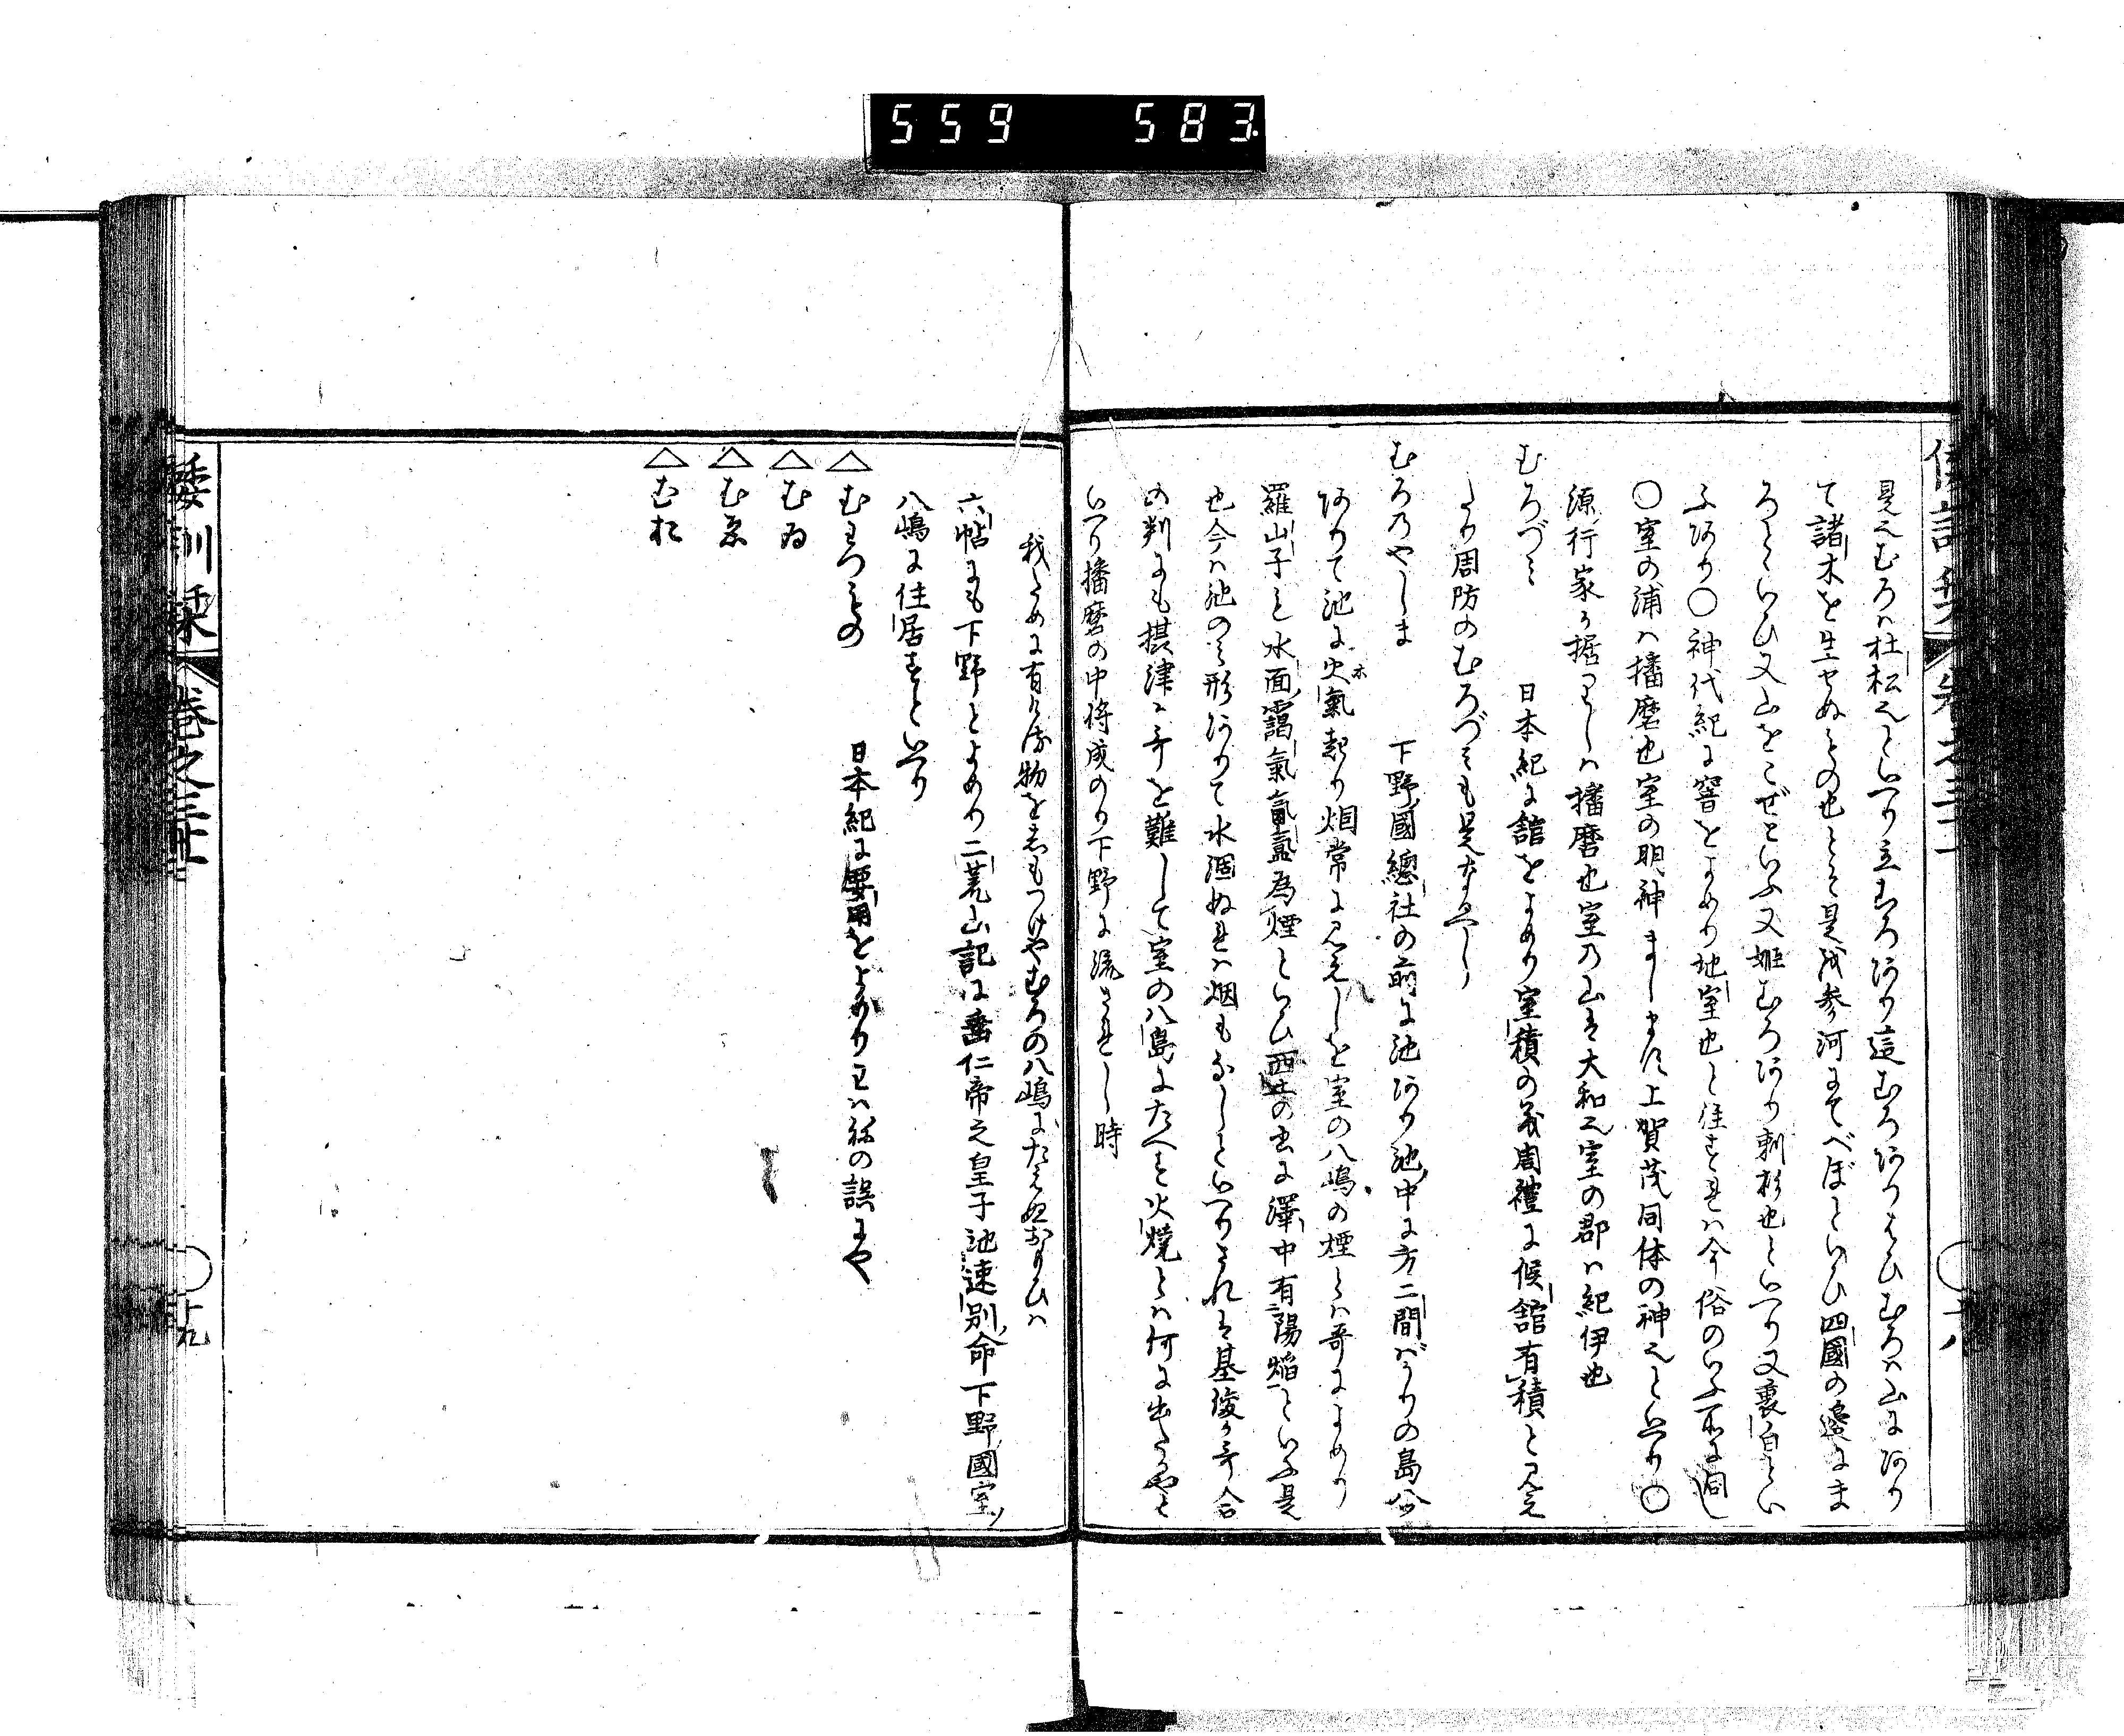 559 583
見えむろハ杜松也といへり立むろあり這むろありはひむろハ山にあり
て諸木を生せぬもの也とそ是を参河にてべぼといひ四國の邊にま
ろといひ又山をこぜといふ又姫むろあり刺杉也といへり又裏白とい
ふあり〇神代紀に窨をよめり地室也と注すれハ今俗のいふ所に同し
〇室の浦ハ播磨也室の明神まします上賀茂同体の神也といへり〇
源行家か据りしハ播磨也室の山は大和也室の郡ハ紀伊也
むろづミ 日本紀に館をよめり室積の義周禮に候館有積と見え
たり周防のむろづミも是なるへし
むろのやしま 下野國總社の前に池あり池中に方二間ばかりの島八ッ
ありて池に火氣起り烟常に見えしを室の八嶋の煙とハ哥によめり
羅山子と水面靄氣氤氳為煙といひ西土の書に澤中有陽焔といふ是
也今ハ池のミ形ありて水涸ぬれハ烟もなしといへりされは基俊か哥合
の判にも摂津か哥を難して室の八島にたへす火燒とハ何に出たるやと
いへり播磨の中将成のり下野に流されし時
我ために有ける物をしもつけやむろの八嶋にたえぬおもひハ
六帖にも下野とよめり二荒山記に垂仁帝之皇子池速別命下野國室ノ
八嶋に住居すといへり
△むわつもの 日本紀に要用をよめりわハ祢の誤にや
△むゐ
△むゑ
△むお
倭訓栞 巻之三十一 〇十八
倭訓栞 巻之三十一 〇十九